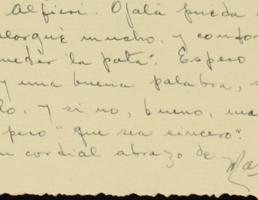 Alfieri. Ojalá pueda
mucho. y
meter "la pata". Espero
y una buena palabra, s
lo. y si no, bueno, ma
pero "que sea sincero".
n cordial abrazo de